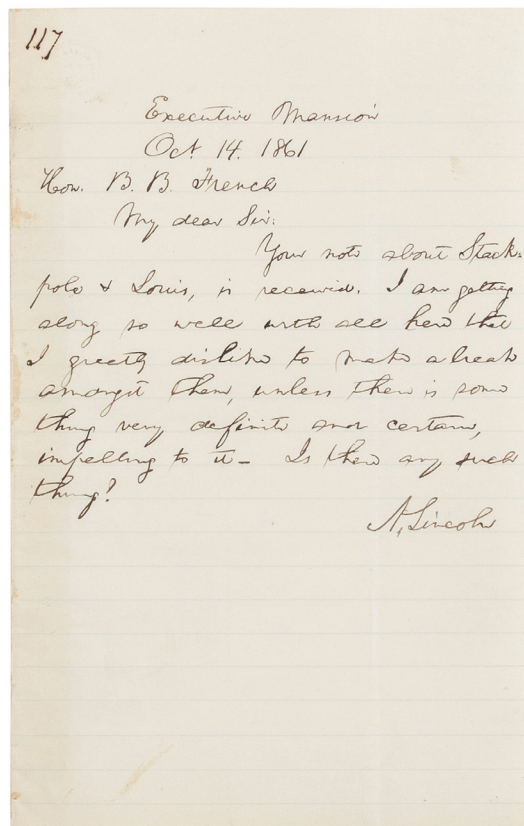 117
Executive Mansion
Oct. 14. 1861
Hon. B. B. French
My dear Sir:
Your note about Stack-
pole & Louis, is received. I am getting
along so well with all here that
I greatly dislike to make a break
amongst them, unless there is some
thing very definite and certain,
impelling to it — Is there any such
thing?
A. Lincoln